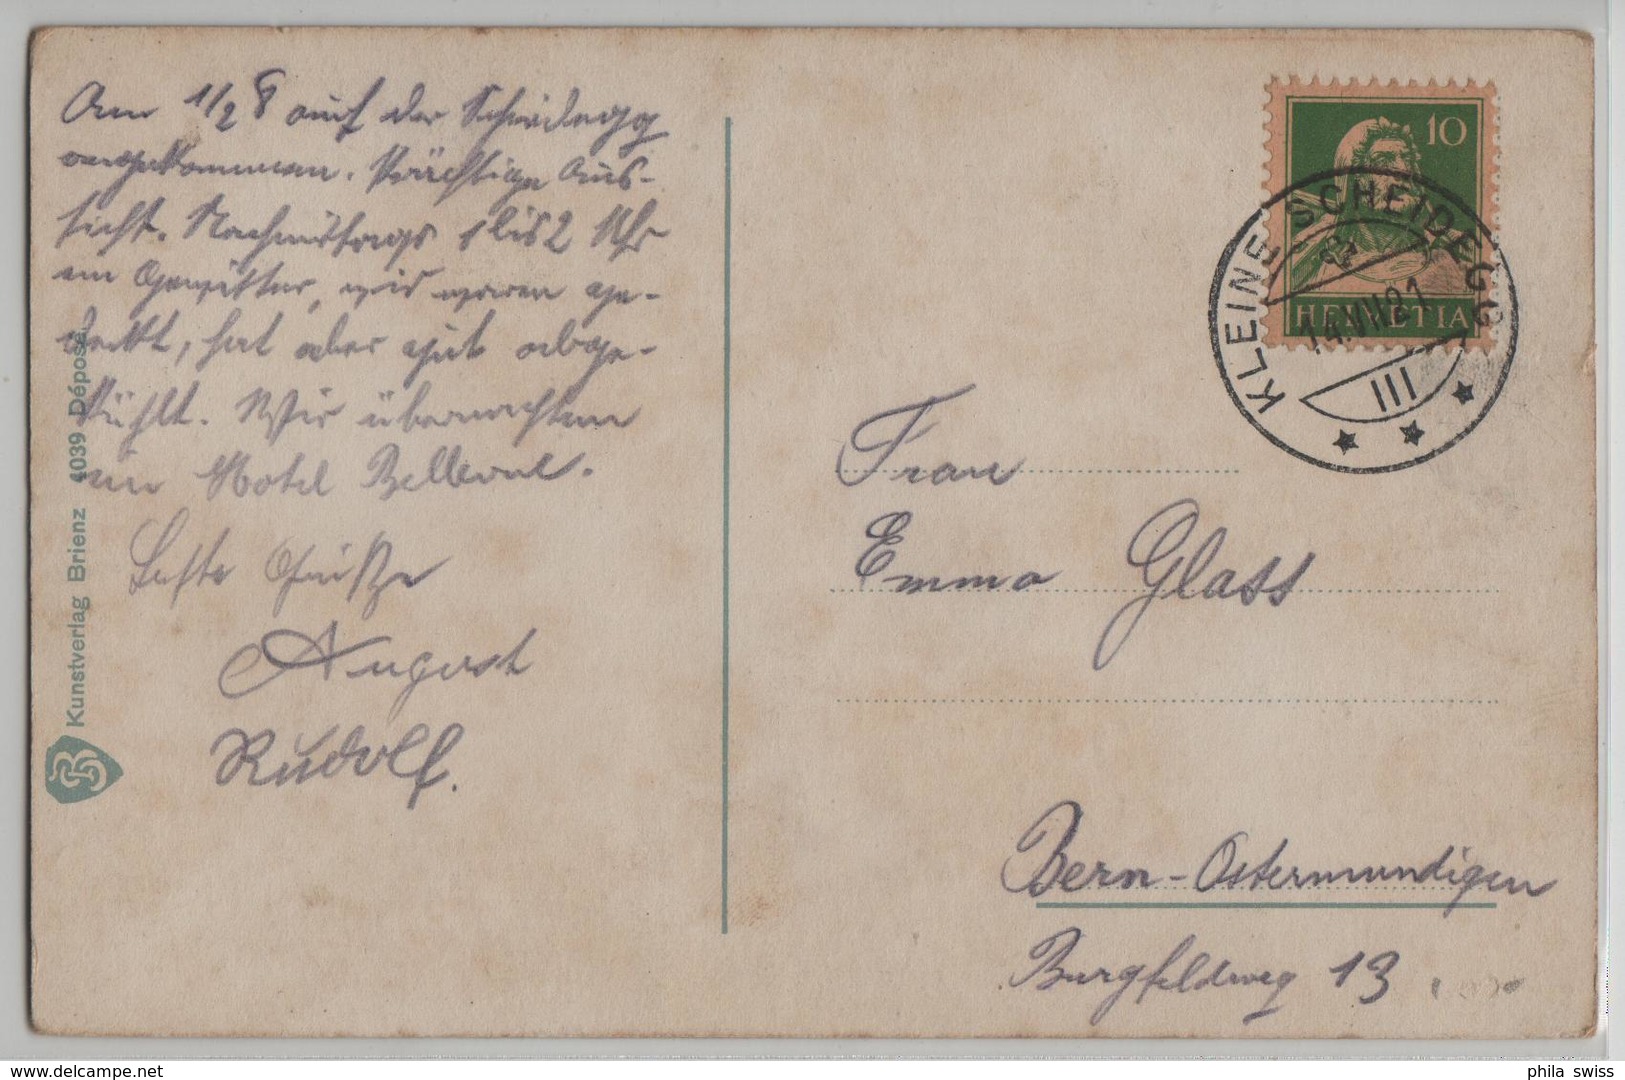 Am 1/2 8 auf der Scheidegg
angekommen. Prächtige Aus-
sicht. Nachmittags 1 bis 2 Uhr
ein Gewitter, wir waren ge-
deckt, hat aber gut abge-
kühlt. Wir übernachten
im Hotel Bellevue.
Beste Grüße
August
Rudolf.
Kunstverlag Brienz 4039 Déposé.
10
HELVETIA
KLEINE SCHEIDEGG
14.VIII.21
III
Frau
Emma Glass
Bern-Ostermundigen
Burgfeldweg 13
phila swiss
delcampe.net